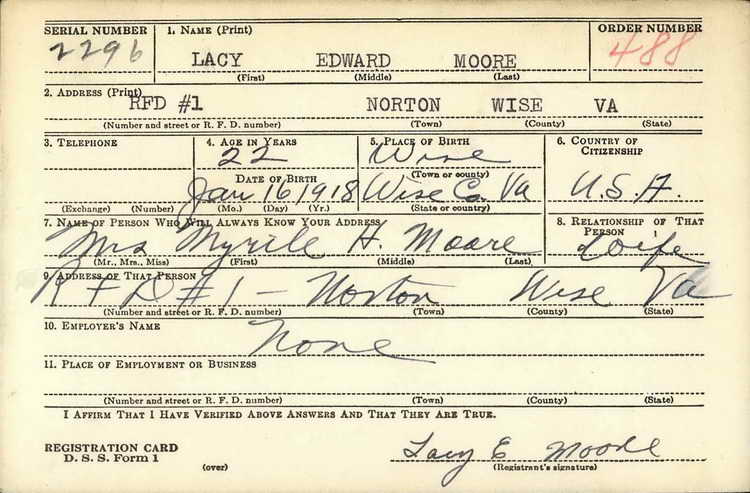 SERIAL NUMBER 1. NAME (Print) ORDER NUMBER
2296 LACY EDWARD MOORE 488
(First) (Middle) (Last)
2. ADDRESS (Print)
RFD #1 NORTON WISE VA
(Number and street or R. F. D. number) (Town) (County) (State)
3. TELEPHONE 4. AGE IN YEARS 5. PLACE OF BIRTH 6. COUNTRY OF CITIZENSHIP
22 Wise
(Town or county)
DATE OF BIRTH
Jan 16 1918 Wise Co. Va U.S.A.
(Exchange) (Number) (Mo.) (Day) (Yr.) (State or country)
7. NAME OF PERSON WHO WILL ALWAYS KNOW YOUR ADDRESS 8. RELATIONSHIP OF THAT PERSON
Mrs Myrtle H. Moore Wife
(Mr., Mrs., Miss) (First) (Middle) (Last)
9. ADDRESS OF THAT PERSON
R F D # 1 - Norton Wise Va
(Number and street or R. F. D. number) (Town) (County) (State)
10. EMPLOYER'S NAME
None
11. PLACE OF EMPLOYMENT OR BUSINESS
(Number and street or R. F. D. number) (Town) (County) (State)
I AFFIRM THAT I HAVE VERIFIED ABOVE ANSWERS AND THAT THEY ARE TRUE.
REGISTRATION CARD Lacy E Moore
D. S. S. Form 1 (over) (Registrant's signature)